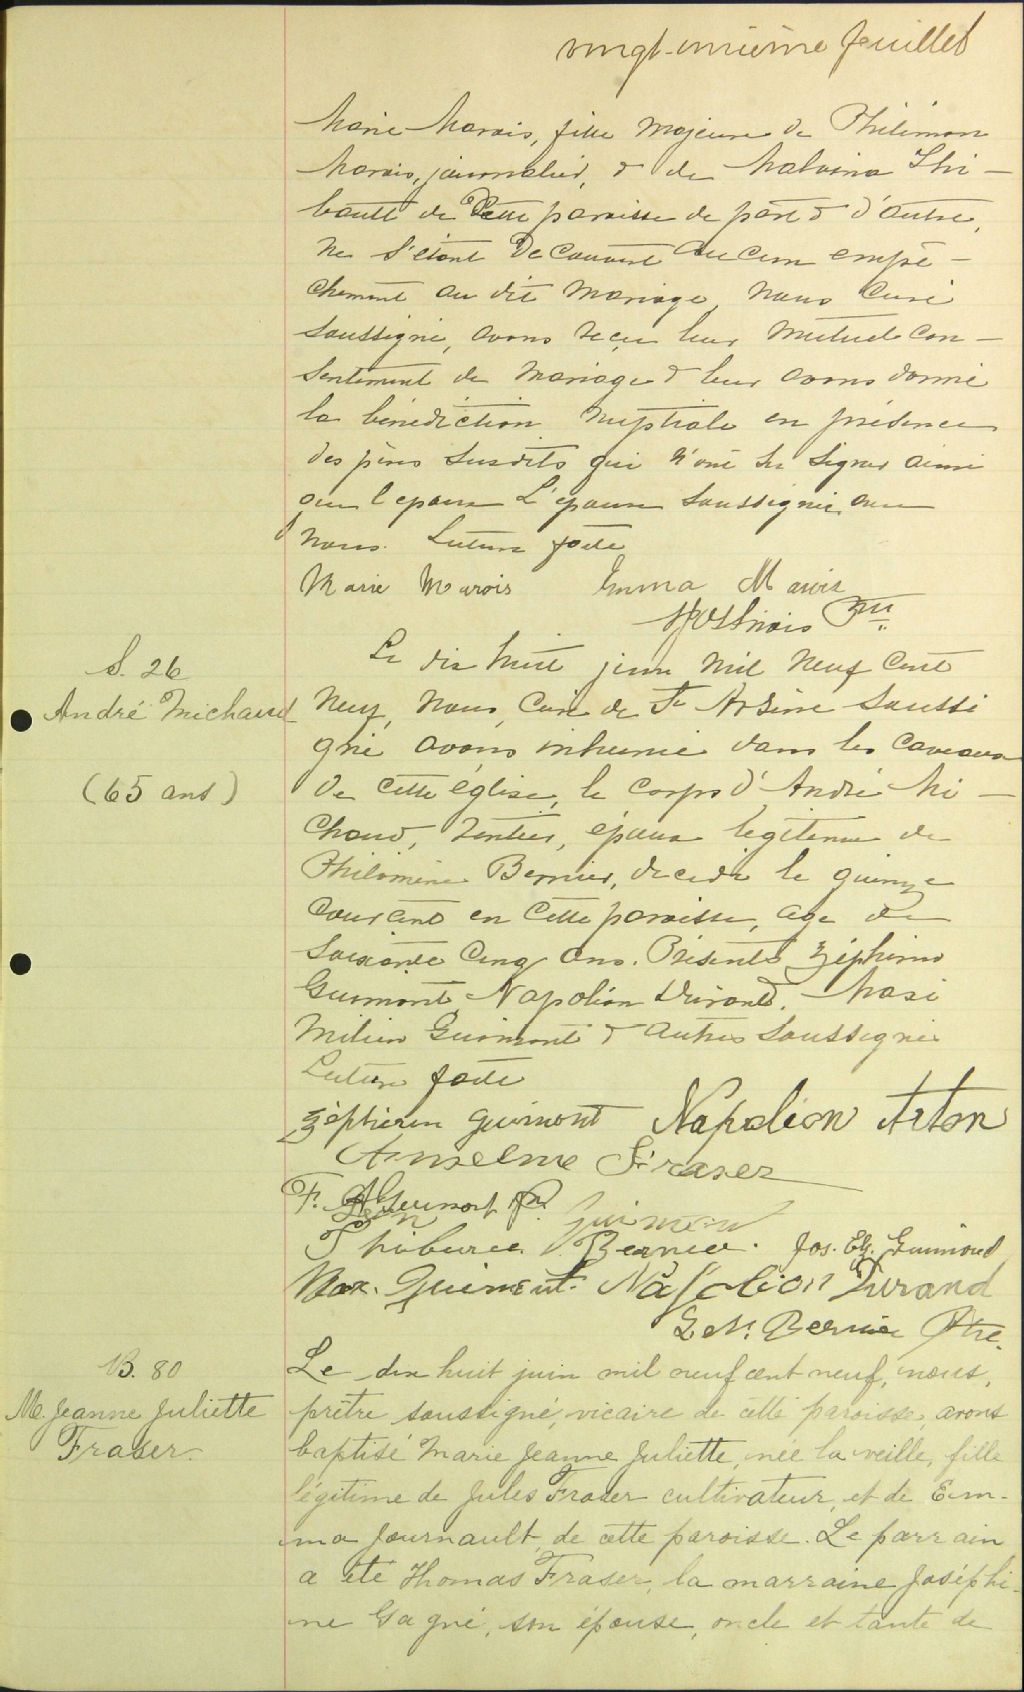 vingt-unième feuillet
Marie Marois, fille majeure de Philémon
Marois, journalier, & de Malvina Thi-
bault de cette paroisse de part & d'autre,
ne s'étant découvert aucun empê-
chement au dit mariage, nous curé
soussigné, avons reçu leur mutuel con-
sentement de mariage & leur avons donné
la bénédiction nuptiale en présence
des pères susdits qui n'ont su signer ainsi
que l'époux L'épouse soussignée avec
nous. Lecture faite
Marie Marois Emma Marois
Ptre
S. 26
André Michaud
(65 ans)
Le dix huit juin mil neuf cent
neuf, nous, curé de St Arsène soussi
gné avons inhumé dans les caveaux
de cette église, le corps d'André Mi-
chaud, rentier, époux légitime de
Philomène Bernier, décédé le quinze
courant en cette paroisse, agé de
soixante cinq ans. Présents Zéphirin
Guimont, Napoléon Durand, Maxi
milien Guimont & autres soussignés
Lecture faite
Zéphirin Guimont Napoléon Arton
Anselme Fraser
F. A. Guimont
Guimond
Bernier. Jos. Elz. Guimond
Max. Guimont. Napoléon Durand
Bernier Ptre.
B. 80
M. Jeanne Juliette
Fraser.
Le dix huit juin mil neuf cent neuf, nous,
prêtre soussigné, vicaire de cette paroisse, avons
baptisé Marie Jeanne Juliette, née la veille, fille
légitime de Jules Fraser cultivateur, et de Em-
ma Journault, de cette paroisse. Le parrain
a été Thomas Fraser, la marraine Joséphi-
ne Gagné, son épouse, oncle et tante de